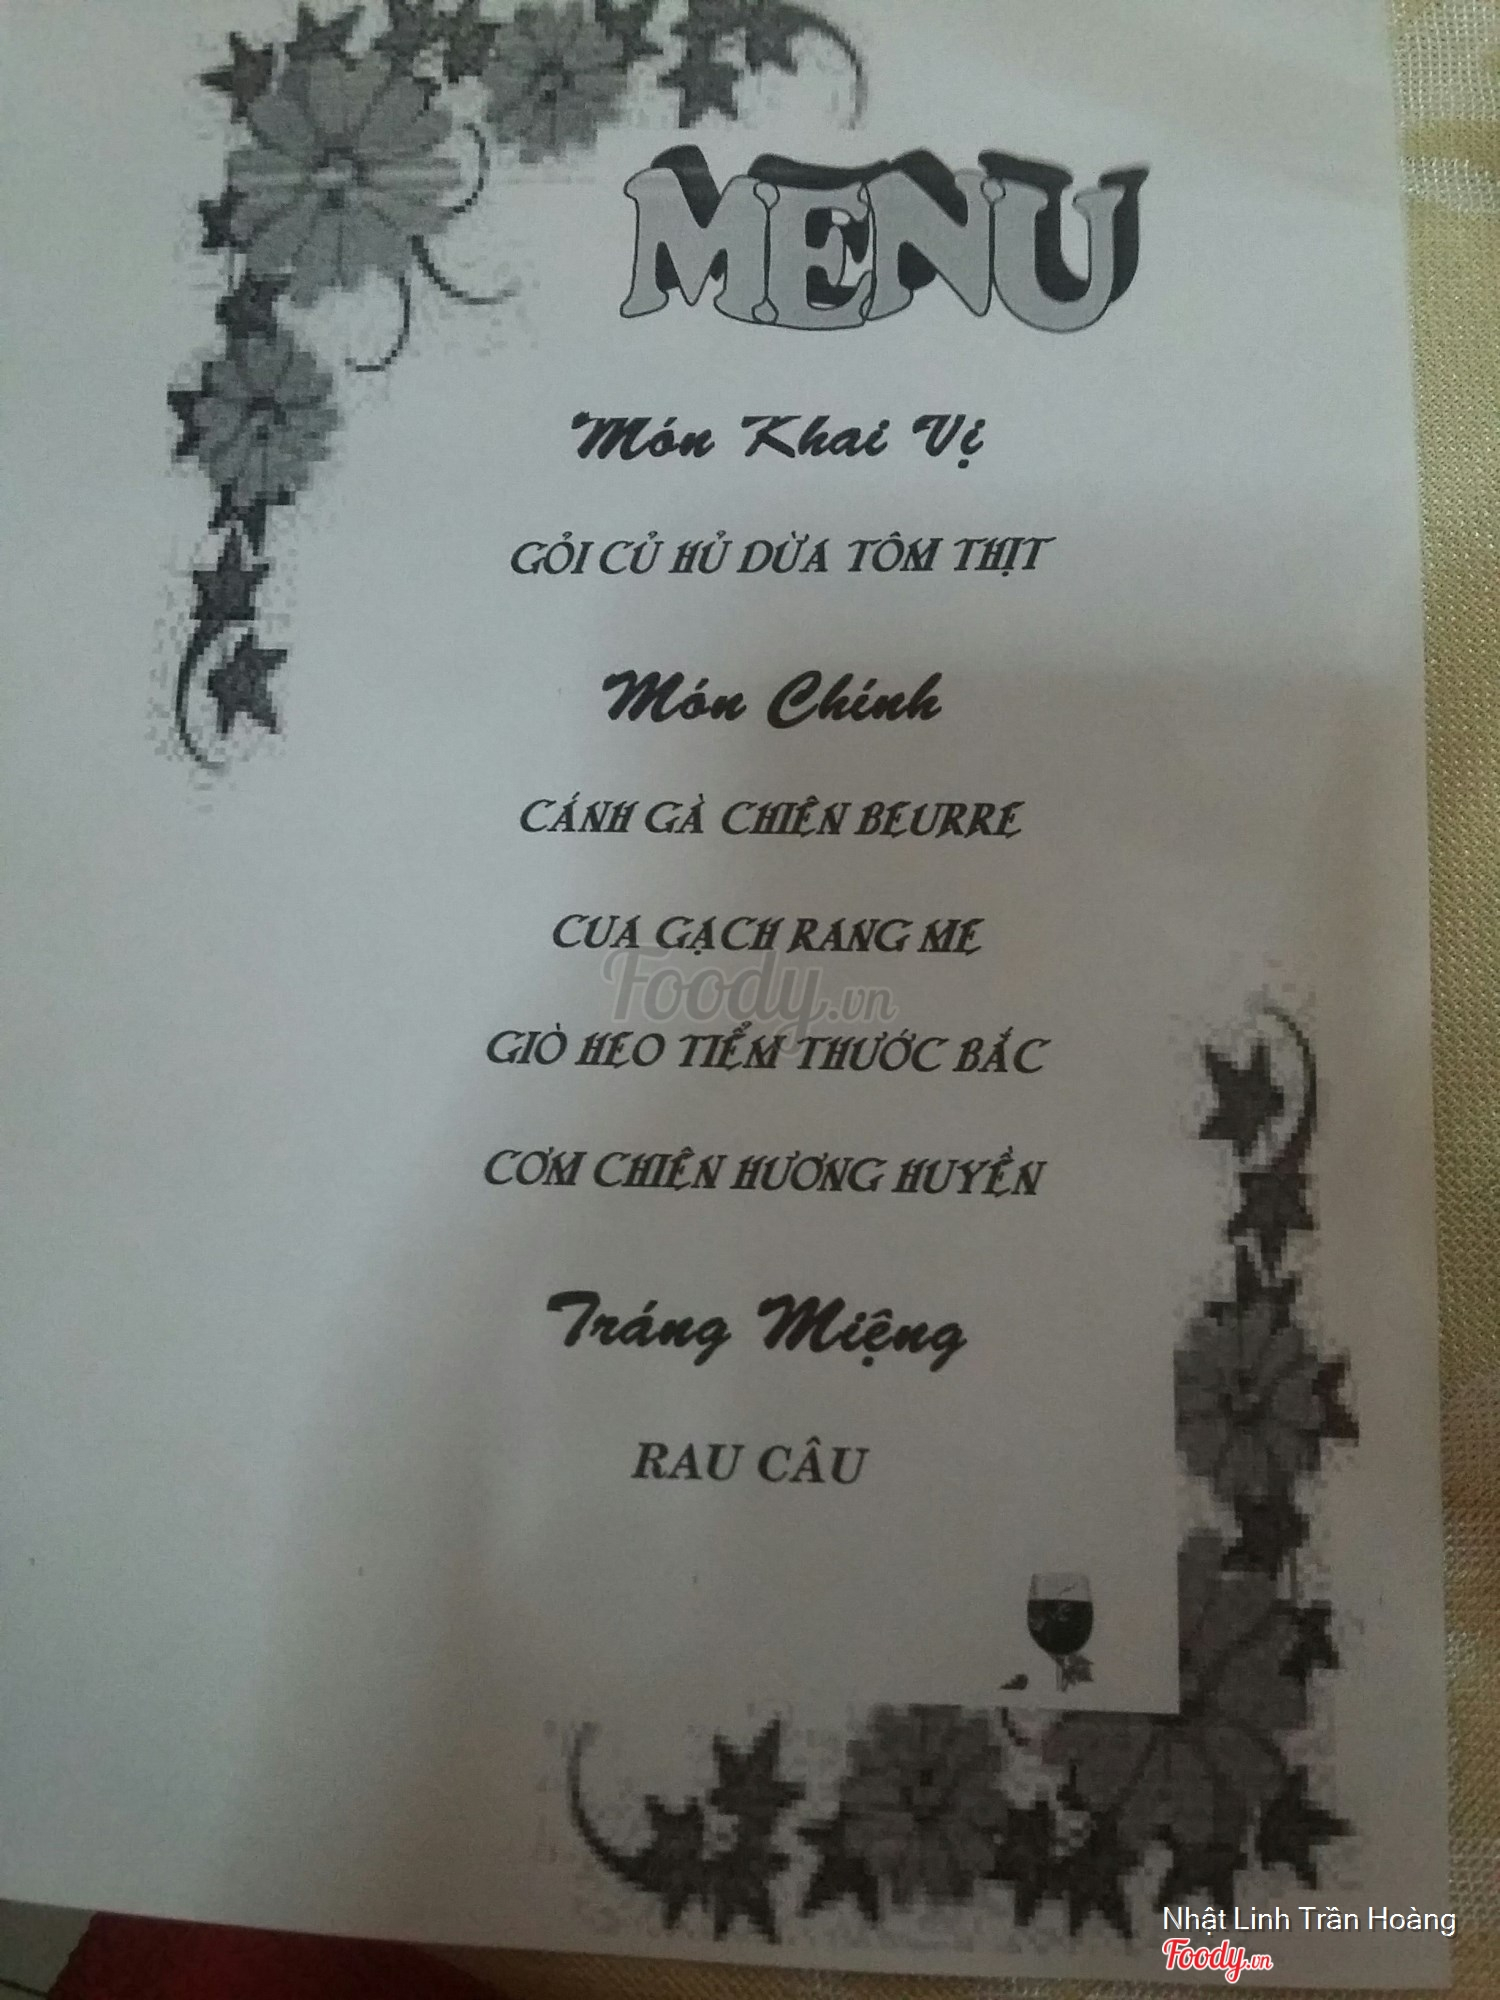 MENU
Món Khai Vị
GỎI CỦ HỦ DỪA TÔM THỊT
Món Chính
CÁNH GÀ CHIÊN BEURRE
CUA GẠCH RANG ME
Foody.vn
GIÒ HEO TIỂM THƯỚC BẮC
CƠM CHIÊN HƯƠNG HUYỀN
Tráng Miệng
RAU CÂU
Nhật Linh Trần Hoàng
Foody.vn